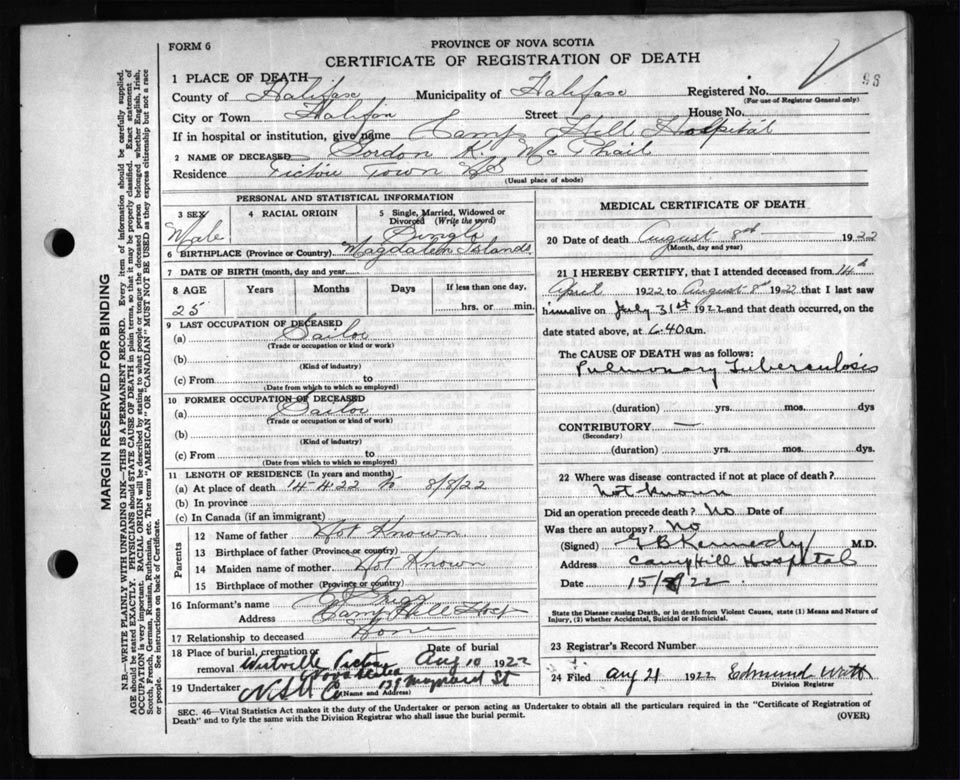 FORM 6
PROVINCE OF NOVA SCOTIA
CERTIFICATE OF REGISTRATION OF DEATH
1 PLACE OF DEATH
County of Halifax Municipality of Halifax Registered No.
(For use of Registrar General only)
City or Town Halifax Street House No.
If in hospital or institution, give name Camp Hill Hospital
2 NAME OF DECEASED Gordon K. McPhail
Residence Pictou Town NS
(Usual place of abode)
PERSONAL AND STATISTICAL INFORMATION
3 SEX 4 RACIAL ORIGIN 5 Single, Married, Widowed or Divorced (Write the word)
Male Single
6 BIRTHPLACE (Province or Country) Magdalen Islands
7 DATE OF BIRTH (month, day and year)
8 AGE Years Months Days If less than one day,
25 hrs. or min.
9 LAST OCCUPATION OF DECEASED
(a) Sailor
(Trade or occupation or kind or work)
(b)
(Kind of industry)
(c) From to
(Date from which to which so employed)
10 FORMER OCCUPATION OF DECEASED
(a) Sailor
(b)
(Kind of industry)
(c) From to
(Date from which to which so employed)
11 LENGTH OF RESIDENCE (In years and months)
(a) At place of death 14-4-22 to 8/8/22
(b) In province
(c) In Canada (if an immigrant)
Parents
12 Name of father Not Known
13 Birthplace of father (Province or country)
14 Maiden name of mother Not Known
15 Birthplace of mother (Province or country)
16 Informant's name
Address Camp Hill Hosp
17 Relationship to deceased None
18 Place of burial, cremation or Date of burial
removal Westville Pictou Aug 10 1922
Nova Scotia
19 Undertaker N.S.U.C. 139 Maynard St
(Name and Address)
MEDICAL CERTIFICATE OF DEATH
20 Date of death August 8th 1922
(Month, day and year)
21 I HEREBY CERTIFY, that I attended deceased from 14th
April 1922 to August 8th 1922 that I last saw
him alive on July 31st 1922 and that death occurred, on the
date stated above, at 6.40 am.
The CAUSE OF DEATH was as follows:
Pulmonary Tuberculosis
(duration) yrs. mos. dys
CONTRIBUTORY —
(Secondary)
(duration) yrs. mos. dys.
22 Where was disease contracted if not at place of death?
Not Known
Did an operation precede death? No Date of
Was there an autopsy? No
(Signed) G B Kennedy M.D.
Address Camp Hill Hospital
Date 15/8/22
State the Disease causing Death, or in death from Violent Causes, state (1) Means and Nature of
Injury, (2) whether Accidental, Suicidal or Homicidal.
23 Registrar's Record Number
24 Filed Aug 21 1922 Edmund Watt
Division Registrar
SEC. 46—Vital Statistics Act makes it the duty of the Undertaker or person acting as Undertaker to obtain all the particulars required in the "Certificate of Registration of
Death" and to fyle the same with the Division Registrar who shall issue the burial permit.
(OVER)
MARGIN RESERVED FOR BINDING
N.B.—WRITE PLAINLY WITH UNFADING INK—THIS IS A PERMANENT RECORD. Every item of information should be carefully supplied.
AGE should be stated EXACTLY. PHYSICIANS should STATE CAUSE OF DEATH in plain terms, so that it may be properly classified. Exact statement of
OCCUPATION is very important. RACIAL ORIGIN will be described by stating to what people or tongue the deceased person belonged whether English, Irish,
Scotch, French, German, Russian, Ruthenian, etc. The terms "AMERICAN" OR "CANADIAN" MUST NOT BE USED as they express citizenship but not a race
or people. See instructions on back of Certificate.